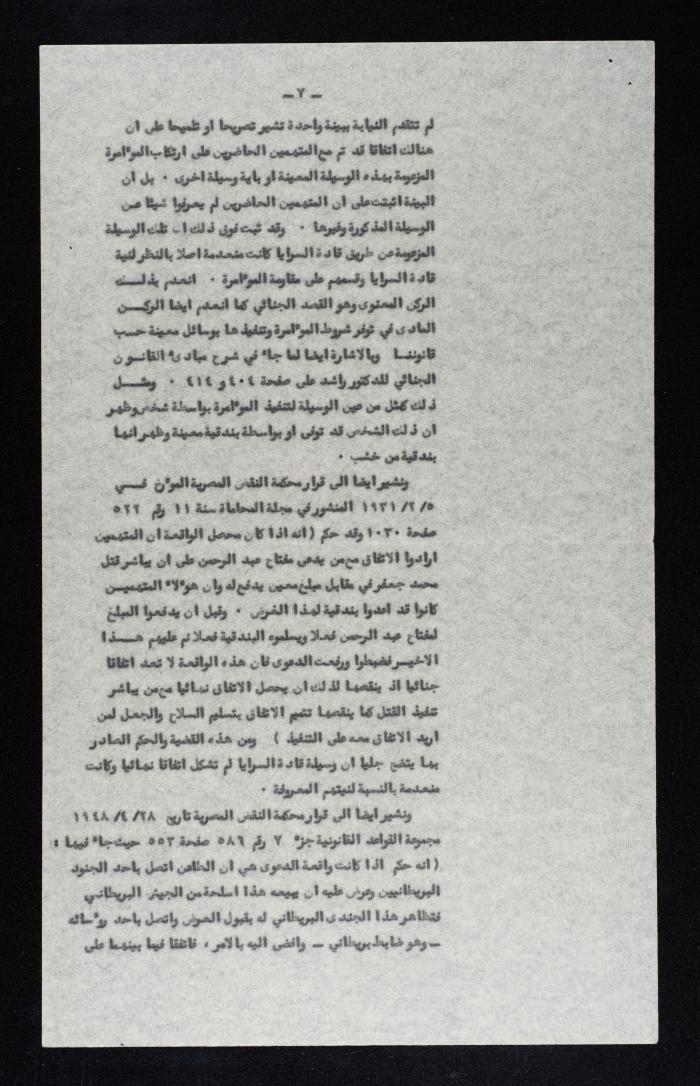 ـ ٧ ـ
لم تتقدم النيابة ببينة واحدة تشير تصريحا او تلميحا على ان
هنالك اتفاقا قد تم مع المتهمين الحاضرين على ارتكاب المؤامرة
المزعومة بهذه الوسيلة المعينة او باية وسيلة اخرى ٠ بل ان
البينة اثبتت على ان المتهمين الحاضرين لم يعرفوا شيئا عن
الوسيلة المذكورة وغيرها ٠ وقد ثبت فوق ذلك ان تلك الوسيلة
المزعومة عن طريق قادة السرايا كانت منعدمة اصلا بالنظر لنية
قادة السرايا وقسمهم على مقاومة المؤامرة ٠ انعدم بذلــك
الركن المعنوى وهو القصد الجنائي كما انعدم ايضا الركــن
المادى في توفر شروط المؤامرة وتنفيذها بوسائل معينة حسب
قانوننــا وبالاشارة ايضا لما جاء في شرح مبادىء القانــون
الجنائي للدكتور راشد على صفحة ٤٠٤ و ٤١٤ ٠ ومثــل
ذلك كمثل من عين الوسيلة لتنفيذ المؤامرة بواسطة شخص وظهر
ان ذلك الشخص قد توفى او بواسطة بندقية معينة وظهر انها
بندقية من خشب ٠
ونشير ايضا الى قرار محكمة النقض المصرية المؤرخ فــي
٥ /٢/ ١٩٣١ المنشور في مجلة المحاماة سنة ١١ رقم ٥٢٢
صفحة ١٠٣٠ وقد حكم ( انه اذا كان محصل الواقعة ان المتهمين
ارادوا الاتفاق مع من يدعى مفتاح عبد الرحمن على ان يباشر قتل
محمد جعفر في مقابل مبلغ معين يدفع له وان هؤلاء المتهميــن
كانوا قد اعدوا بندقية لهذا الغرض ٠ وقبل ان يدفعوا المبلغ
لمفتاح عبد الرحمن فعلا ويسلموه البندقية فعلا نم عليهم هــذا
الاخيــر فضبطوا ورفعت الدعوى فان هذه الواقعة لا تعد اتفاقا
جنائيا اذ ينقصها لذلك ان يحصل الاتفاق نهائيا مع من يباشر
تنفيذ القتل كما ينقصها تتميم الاتفاق بتسليم السلاح والجعل لمن
اريد الاتفاق معه على التنفيذ ) ومن هذه القضية والحكم الصادر
بها يتضح جليا ان وسيلة قادة السرايا لم تشكل اتفاقا نهائيا وكانت
منعدمة بالنسبة لنيتهم المعروفة ٠
ونشير ايضا الى قرار محكمة النقض المصرية تاريخ ٢٨/ ٤/ ١٩٤٨
مجموعة القواعد القانونية جزء ٧ رقم ٥٨٦ صفحة ٥٥٣ حيث جاء فيها :
( انه حكم اذا كانت واقعة الدعوى هي ان الطاعن اتصل باحد الجنود
البريطانيين وعرض عليه ان يبيعه هذا اسلحة من الجيش البريطاني
فتظاهر هذا الجندى البريطاني له بقبول العرض واتصل باحد رؤسائه
ـ وهو ضابط بريطاني ـ وافضى اليه بالامر ، فاتفقا فيما بينهما على